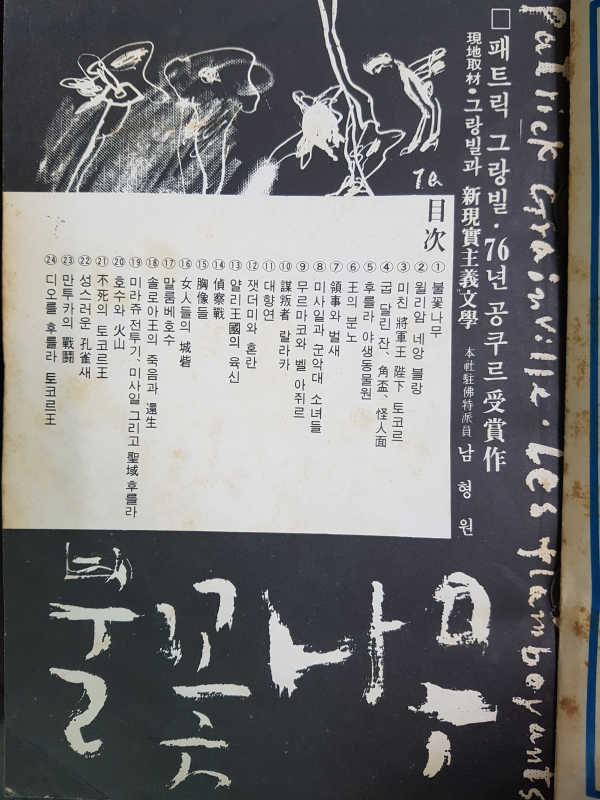 □ 패트릭 그랑빌·76년 공쿠르受賞作
現地取材·그랑빌과 新現實主義文學 本社駐佛特派員 남형원
Patrick Grainville · Les flamboyants
目次
① 불꽃나무
② 윌리암 네앙 블랑
③ 미친 將軍王 陛下 토코르
④ 굽 달린 잔、角盃、怪人面
⑤ 후를라 야생동물원
⑥ 王의 분노
⑦ 領事와 벌새
⑧ 미사일과 군악대 소녀들
⑨ 무르마코와 벨 아쥐르
⑩ 謀叛者 랄라카
⑪ 대향연
⑫ 잿더미와 혼란
⑬ 얄리王國의 육신
⑭ 偵察戰
⑮ 胸像들
⑯ 女人들의 城砦
⑰ 말룸베호수
⑱ 솔로아王의 죽음과 還生
⑲ 미라쥬 전투기、미사일 그리고 聖域 후를라
⑳ 호수와 火山
㉑ 不死의 토코르王
㉒ 성스러운 孔雀새
㉓ 만투카의 戰鬪
㉔ 디오를 후를라 토코르王
불꽃나무